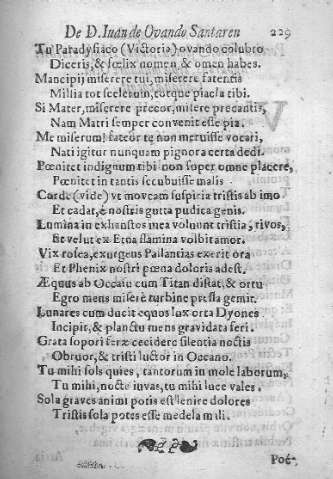 De D. Iuan de Ovando Santaren 229
Tu Paradysiaco (Victoria) ovando colubro
Diceris, & fœlix nomen, & omen habes.
Mancipij miserere tui, miserere fatentis
Millia tot scelerum, totque piacla tibi.
Si Mater, miserere precor, misere precantis,
Nam Matri semper convenit esse pia.
Me miserum! fateor te non meruisse vocari,
Nati igitur nunquam pignora certa dedi.
Pœnitet indignum tibi non super omne placere,
Pœnitet in tantis succubuisse malis
Corde (vide) ut moveam suspiria tristis ab imo
Et cadat, è nostris gutta pudica genis.
Lumina in exhaustos mea volvunt tristia, rivos,
Et velut ex Etna flamina volbit amor.
Vix rosea, exurgens Pallantias exerit ora
Et Phenix nostri pœna doloris adest.
Æquus ab Occasu cum Titan distat, & ortu
Egro mens miserè turbine pressa gemit.
Lunares cum ducit equos lux orta Dyones
Incipit, & planctu mens gravidata feri.
Grata sopori feræ cecidere silentia noctis
Obruor, & tristi luctor in Oceano.
Tu mihi sol quies, tantorum in mole laborum,
Tu mihi, nocte iuvas, tu mihi luce vales.
Sola graves animi potis est lenire dolores
Tristis sola potes esse medela mili.
Poé-